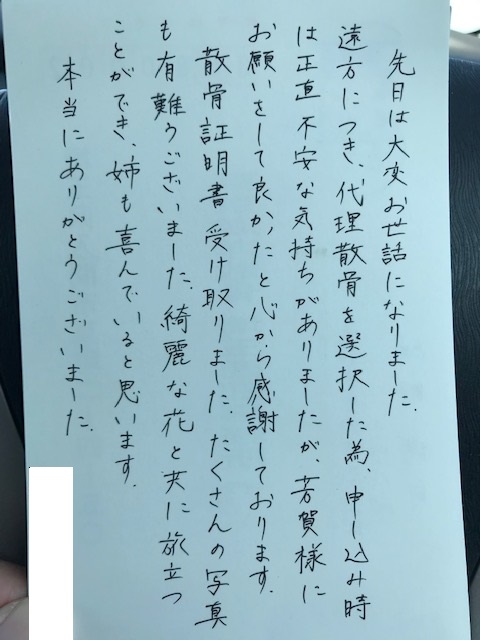 先日は大変お世話になりました.
遠方につき、代理散骨を選択した為、申し込み時
は正直不安な気持ちがありましたが、芳賀様に
お願いをして良かったと心から感謝しております.
散骨証明書受け取りました.たくさんの写真
も有難うございました.綺麗な花と共に旅立つ
ことができ、姉も喜んでいると思います.
本当にありがとうございました.